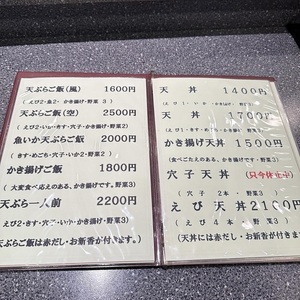 天ぷらご飯(風) 1600円
(えび2・魚2・かき揚げ・野菜3)
天ぷらご飯(空) 2500円
(えび2・いか・きす・穴子・かき揚げ・野菜2)
魚いか天ぷらご飯 2000円
(きす・めごち・穴子・いか2・野菜2)
かき揚げご飯 1800円
(大変食べ応えのある、かき揚げです。野菜3)
天ぷら一人前 2200円
(えび2・きす・穴子・いか・かき揚げ・野菜3)
天ぷらご飯は赤だし・お新香が付きます。)
天丼 1400円
(えび1・いか・かき揚げ・野菜
天丼 1700円
(えび2・きす・めごち・かき揚げ・野菜3)
かき揚げ天丼 1500円
(食べごたえのある、かき揚げです。野菜3)
穴子天丼 (只今休止中)
(穴子2本・野菜3)
えび天丼 2100円
(えび4本・野菜3)
(天丼には赤だし・お新香が付きます)